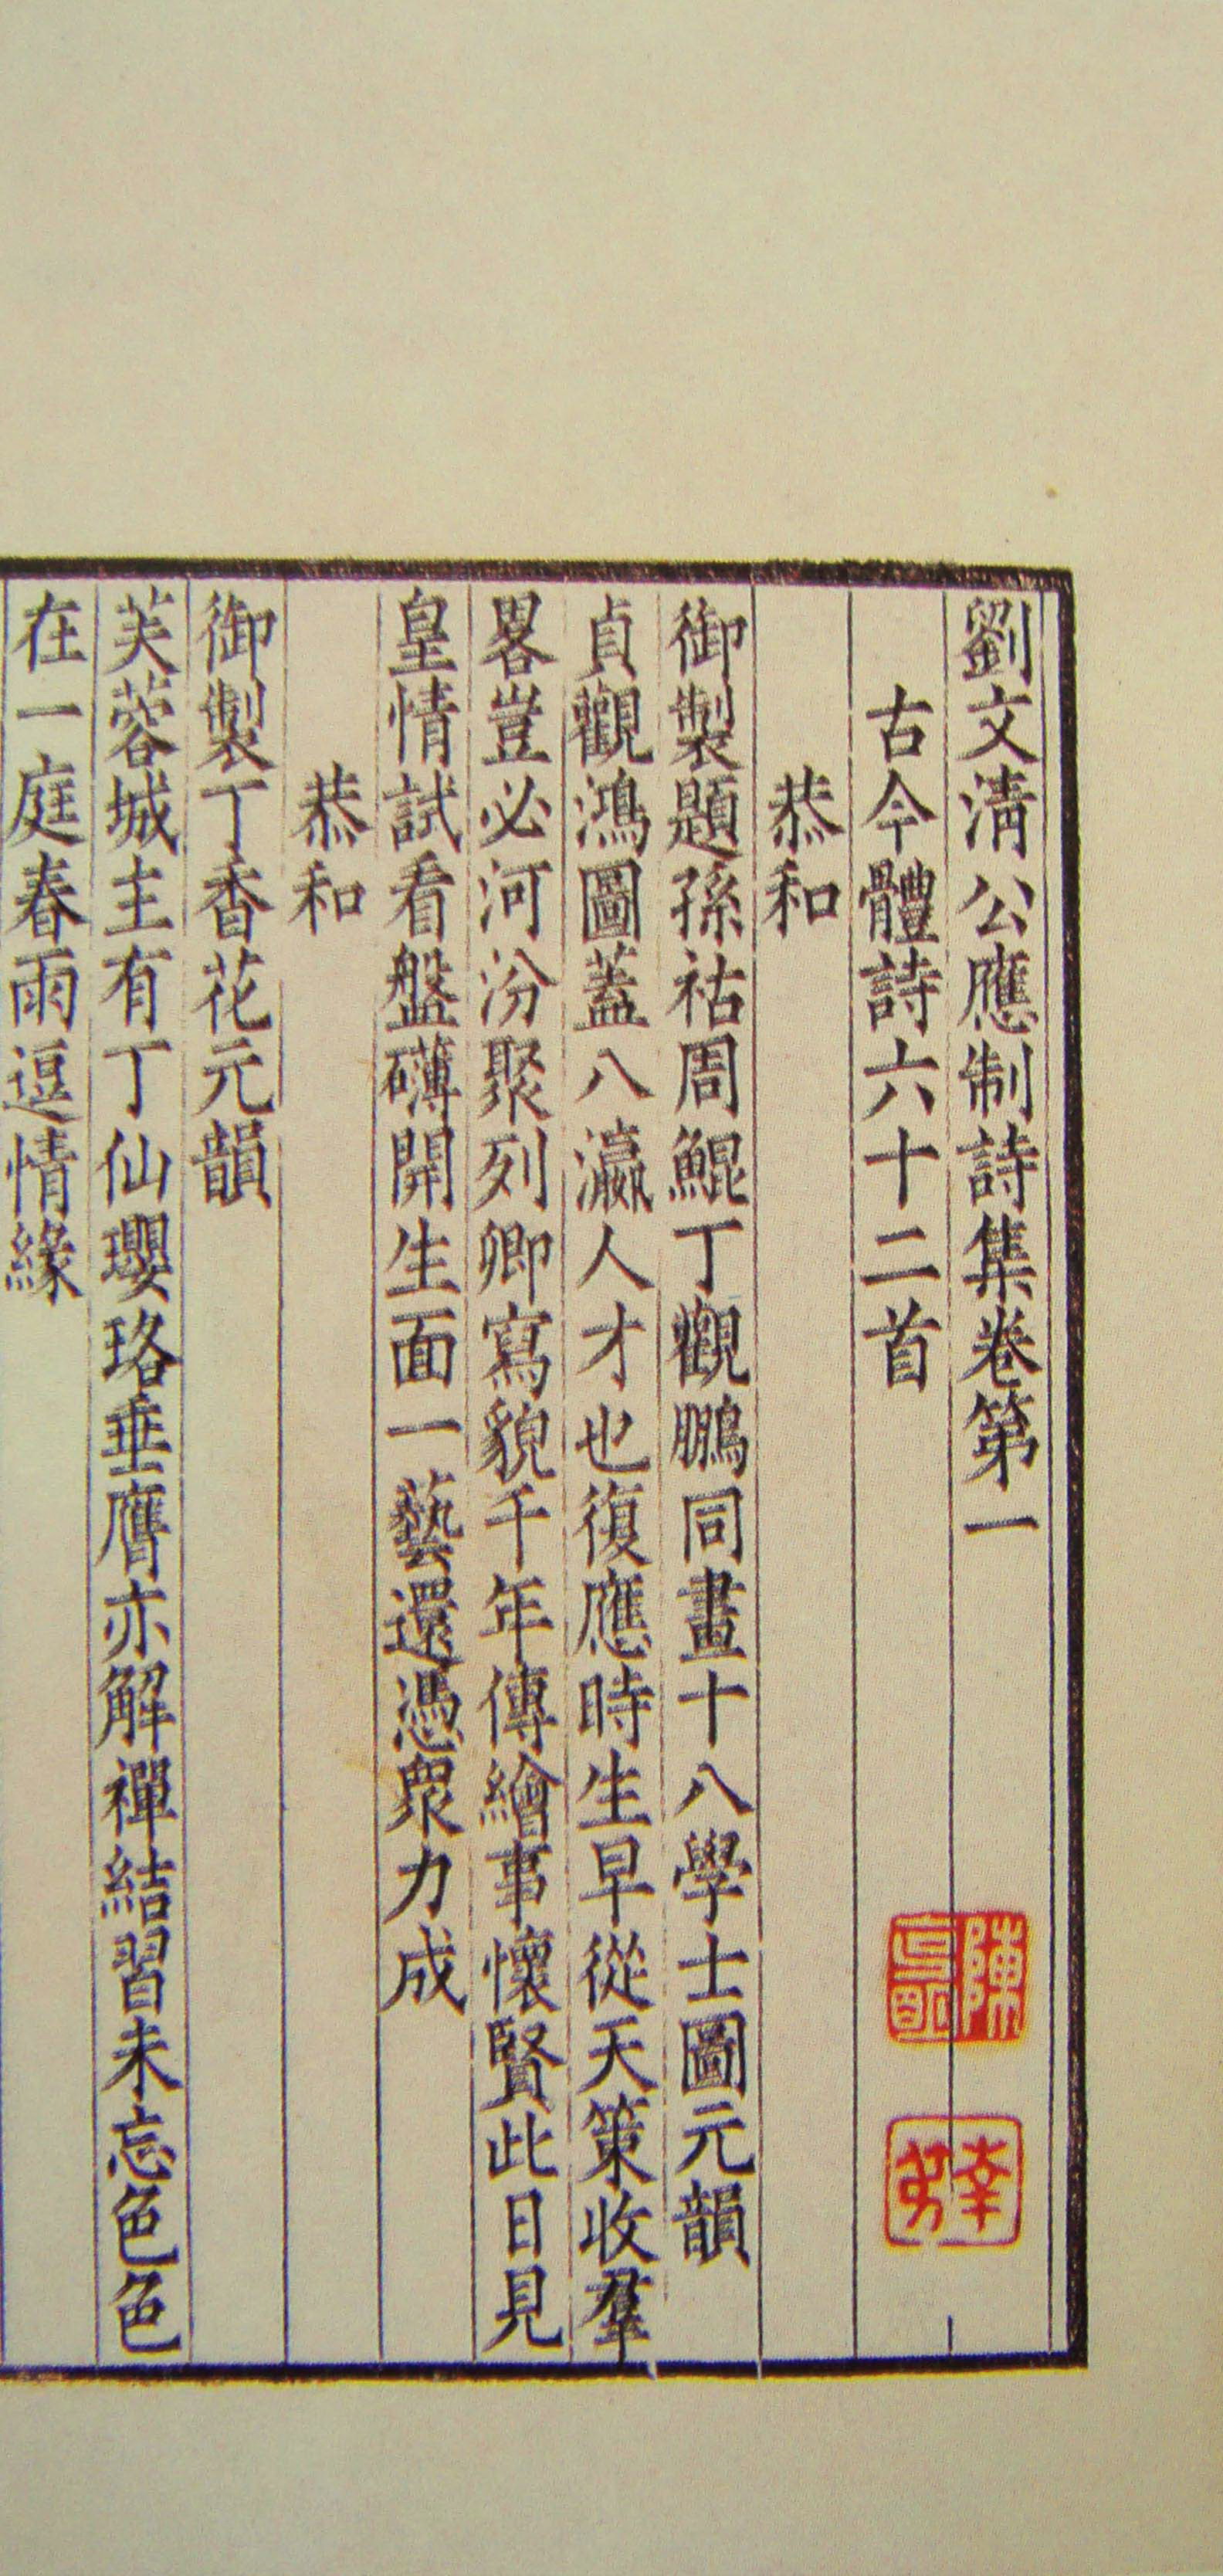 劉文淸公應制詩集卷第一
古今體詩六十二首
恭和
御製題孫祜周鯤丁觀鵬同畫十八學士圖元韻
貞觀鴻圖蓋八瀛人才也復應時生早從天策收羣
畧豈必河汾聚列卿寫貌千年傳繪事懷賢此日見
皇情試看盤礴開生面一藝還憑衆力成
恭和
御製丁香花元韻
芙蓉城主有丁仙瓔珞垂膺亦解禪結習未忘色色
在一庭春雨逗情緣